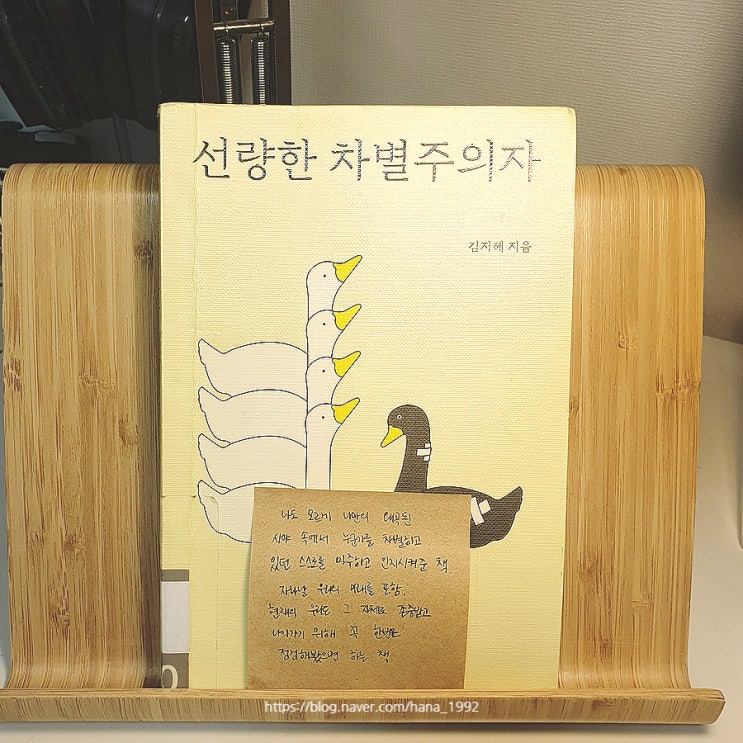 선량한 차별주의자
김지혜 지음
나도 모르게 나만의 왜곡된
시야 속에서 누군가를 차별하고
있던 스스로를 마주하고 인지시켜준 책.
자라날 우리의 미래를 포함,
현재의 우리도 그 자체로 존중받고
나아가기 위해 꼭 한번쯤
점검해봤으면 하는 책.
0
https://blog.naver.com/hana_1992